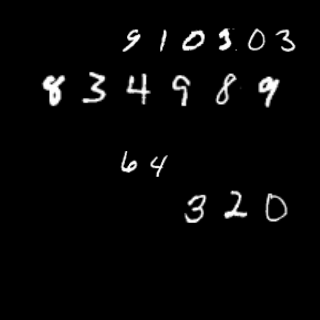 910303
834989
64
320